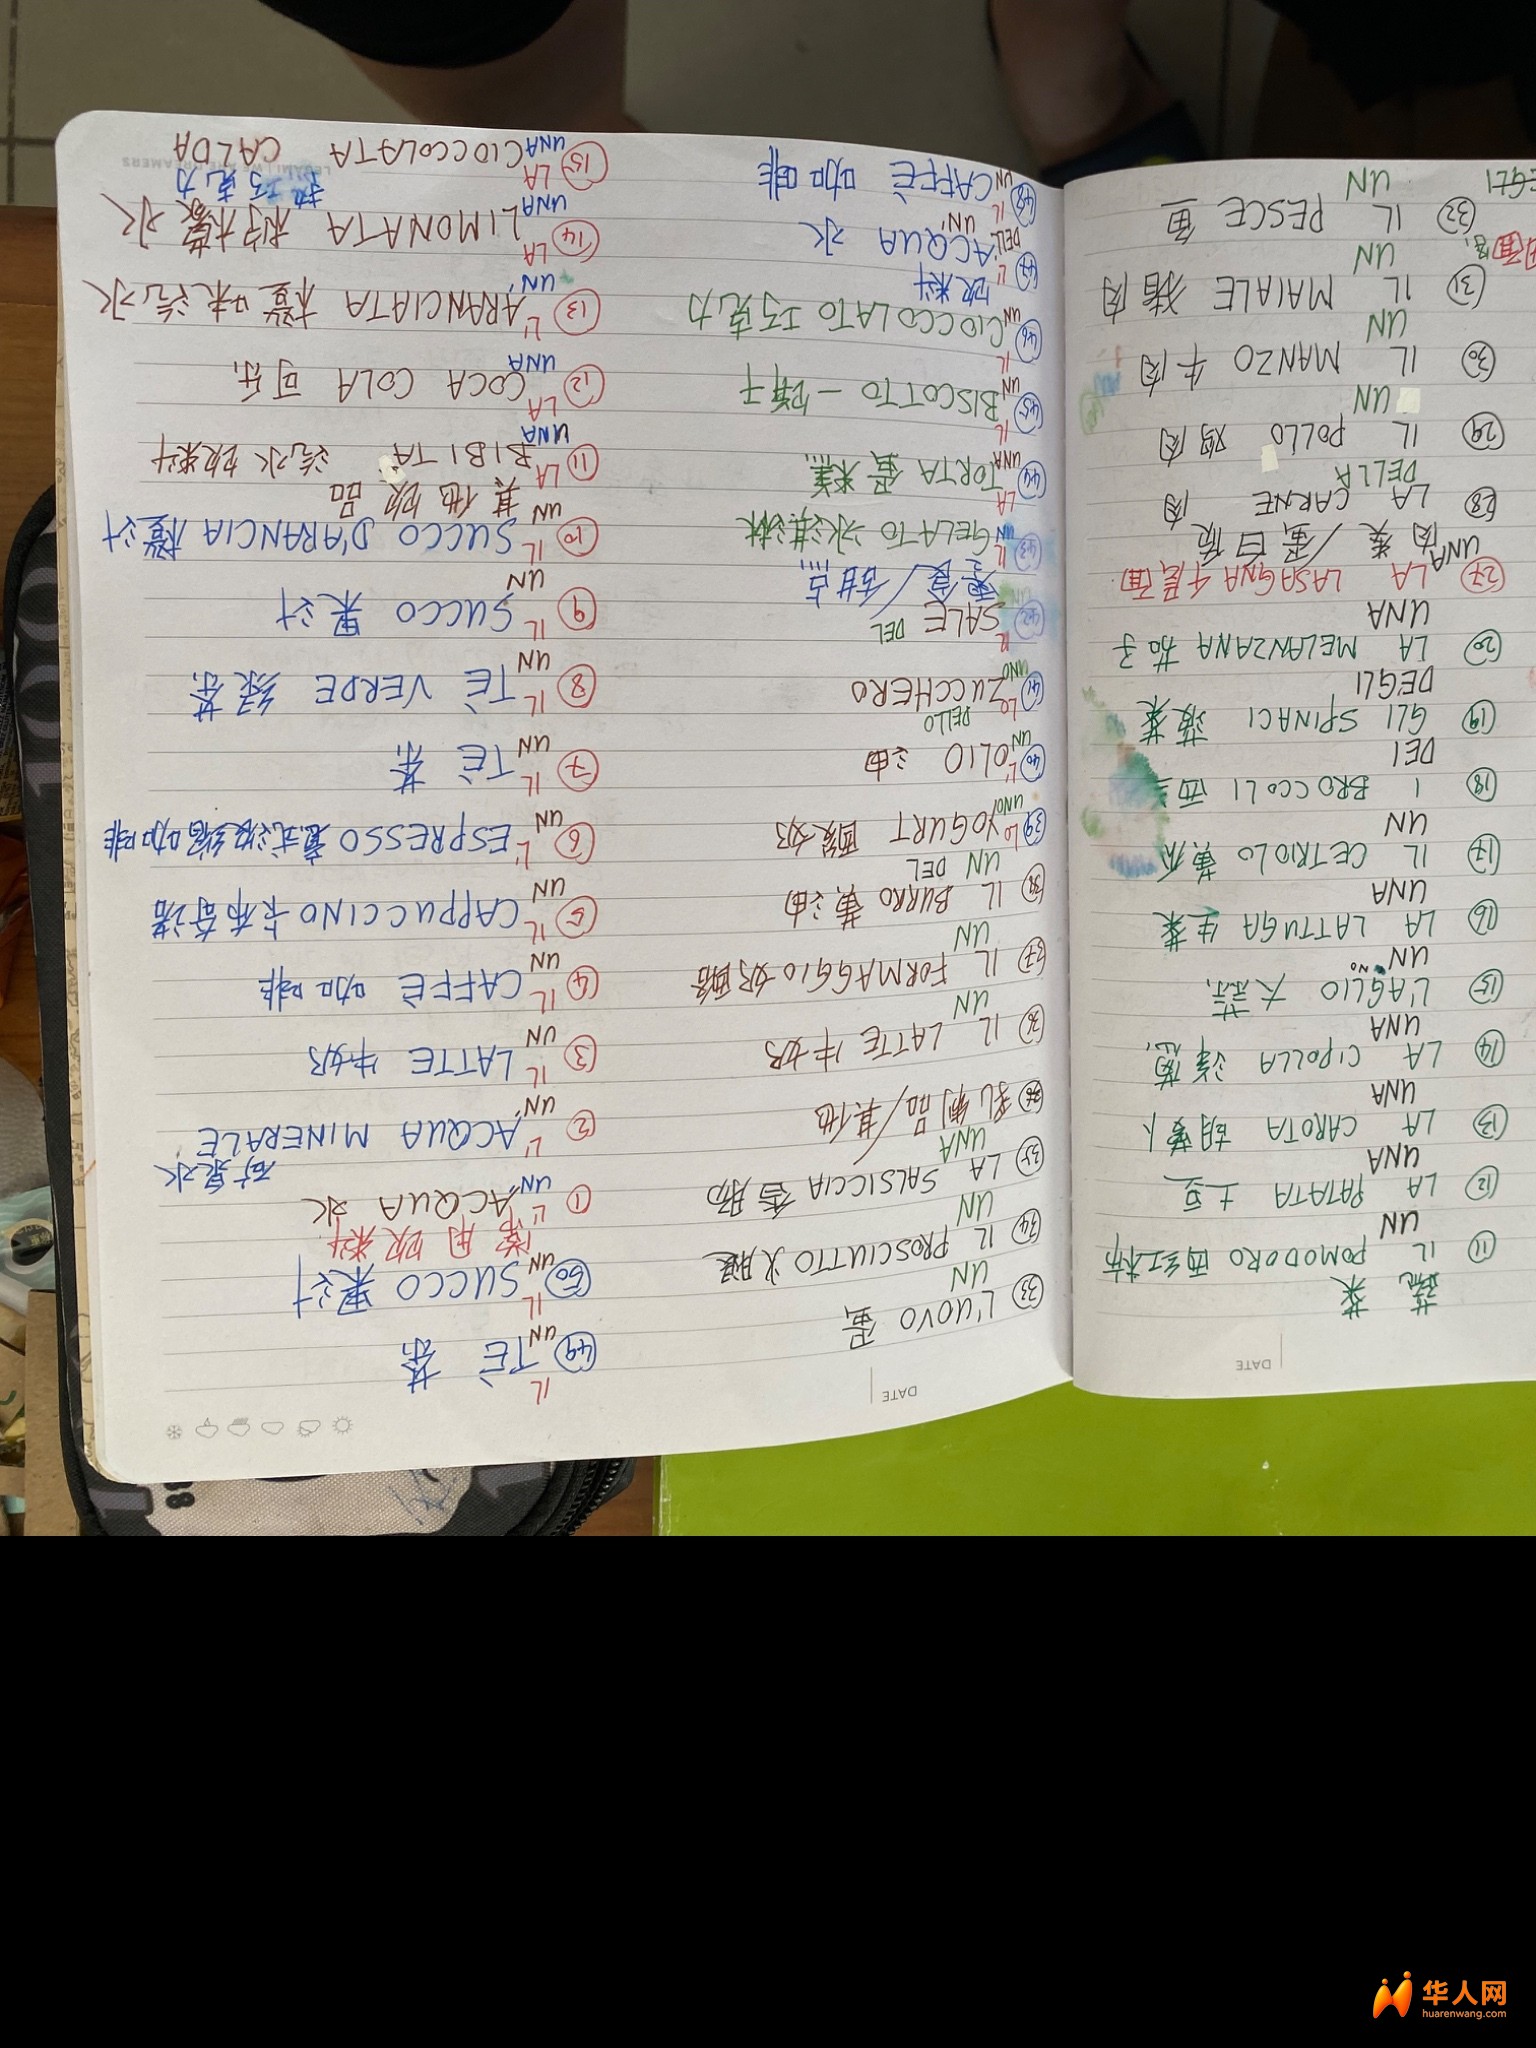 DATE
蔬菜
⑪ IL POMODORO 西红柿
UN
⑫ LA PATATA 土豆
UNA
⑬ LA CAROTA 胡萝卜
UNA
⑭ LA CIPOLLA 洋葱
UNA
⑮ L'AGLIO 大蒜
UN NO
⑯ LA LATTUGA 生菜
UNA
⑰ IL CETRIOLO 黄瓜
UN
⑱ I BROCCOLI 西兰
DEI
⑲ GLI SPINACI 菠菜
DEGLI
⑳ LA MELANZANA 茄子
UNA
㉗ LA LASAGNA 千层面
UNA
肉类/蛋白质
㉘ LA CARNE 肉
DELLA
㉙ IL POLLO 鸡肉
UN
㉚ IL MANZO 牛肉
UN
㉛ IL MAIALE 猪肉
UN
㉜ IL PESCE 鱼
UN
GLI
DATE
㉝ L'UOVO 蛋
UN
㉞ IL PROSCIUTTO 火腿
UN
㉟ LA SALSICCIA 香肠
UNA
㊱ 乳制品/其他
㊱ IL LATTE 牛奶
UN
㊲ IL FORMAGGIO 奶酪
UN
㊳ IL BURRO 黄油
UN DEL
㊴ LO YOGURT 酸奶
UNO
㊵ L'OLIO 油
UN
DELLO
㊶ LO ZUCCHERO
UNO
DEL
㊷ IL SALE
UN
零食/甜点
㊸ IL GELATO 冰淇淋
UN
㊹ LA TORTA 蛋糕
UNA
㊺ IL BISCOTTO 一饼子
UN
㊻ IL CIOCCOLATO 巧克力
UN
饮料
㊼ L'ACQUA 水
DELL' UN'
㊽ IL CAFFÈ 咖啡
UN
㊾ IL TÈ 茶
UN
㊿ IL SUCCO 果汁
UN
常用饮料
① L'ACQUA 水
UN'
矿泉水
② L'ACQUA MINERALE
UN'
③ IL LATTE 牛奶
UN
④ IL CAFFÈ 咖啡
UN
⑤ IL CAPPUCCINO 卡布奇诺
UN
⑥ L'ESPRESSO 意式浓缩咖啡
UN
⑦ IL TÈ 茶
UN
⑧ IL TÈ VERDE 绿茶
UN
⑨ IL SUCCO 果汁
UN
⑩ IL SUCCO D'ARANCIA 橙汁
UN
其他饮品
⑪ LA BIBITA 汽水饮料
UNA
⑫ LA COCA COLA 可乐
UNA
⑬ L'ARANCIATA 橙味汽水
UN'
⑭ LA LIMONATA 柠檬水
UNA
热巧克力
⑮ LA CIOCCOLATA CALDA
UNA
华人网
huarenwang.com